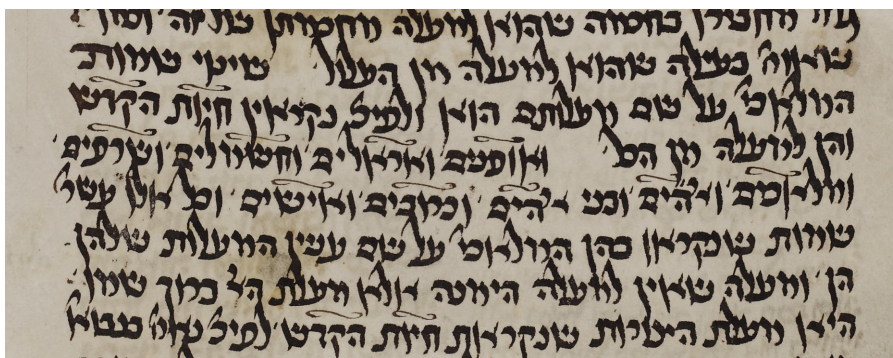 גדול מחבירו בחכמה שהוא למעלה מחכמתו שלזה וכן
שאומ' בעילה שהוא למעלה מן העלול שינוי שמות
המלאכ' על שם מעלתם הוא ולפיכ' נקראין חיות הקדש
והן למעלה מן הכל ואופנים ואראלים וחשמלים ושרפים
ומלאכים וא'הים ובני א'הים וכרובים ואישים וכל אלו עשר'
שמות שנקראו בהן המלאכ' על שם עשר המעלות שלהן
הן ומעלה שאין למעלה הימנה אלא מעלת הא' ברוך שמו
היא מעלת הצורות שנקראות חיות הקדש לפיכ' נאמ' בנבוא